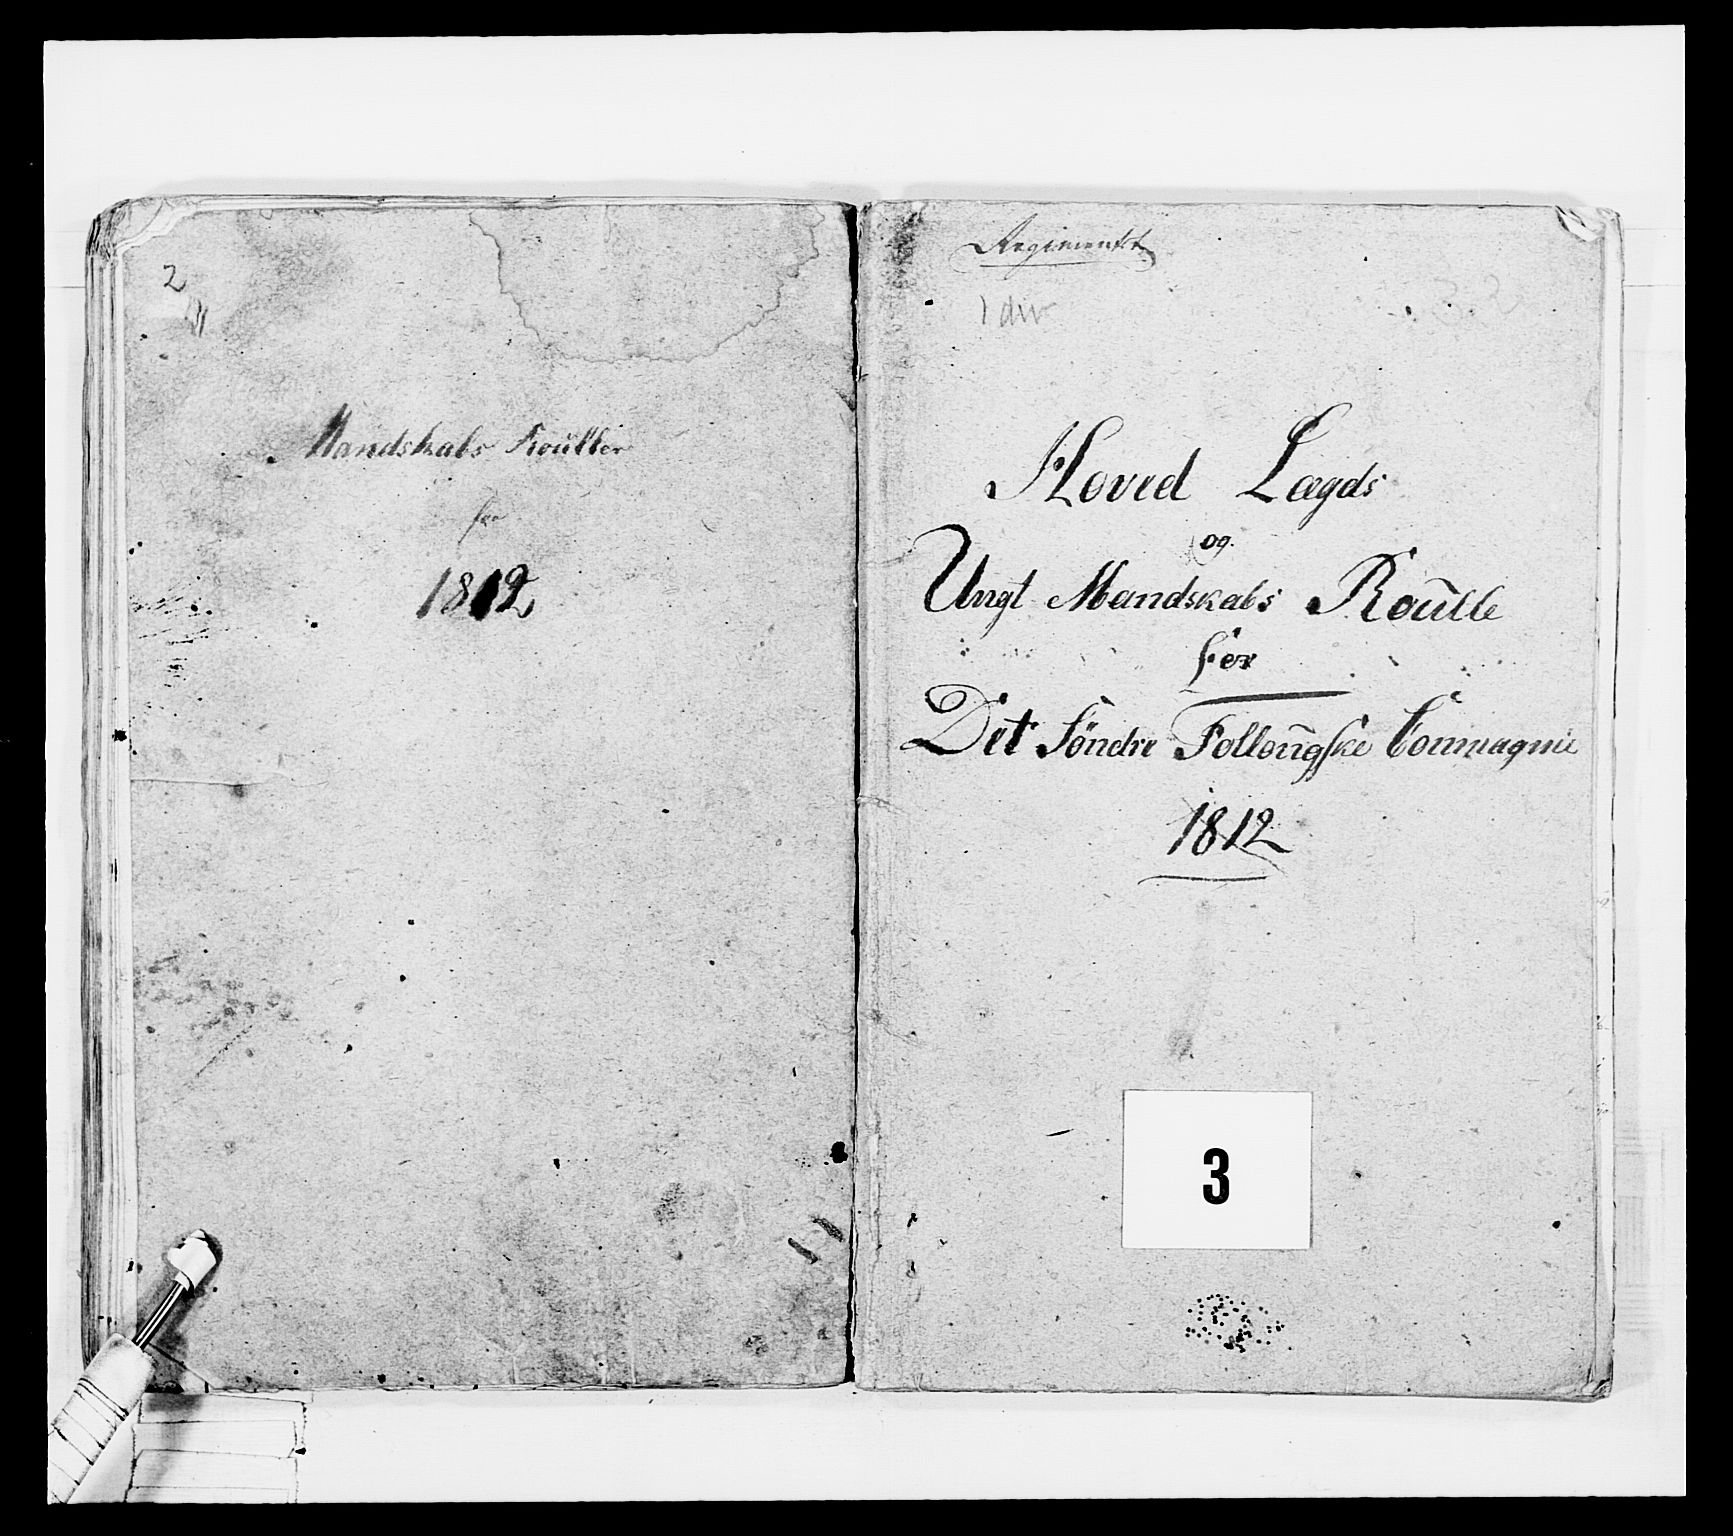 2
Mandskabs Rouller
for
1812
Regimentet
1 div
Hoved Lægds
og
Ungt Mandskabs Roulle
for
Det Søndre Follougske Compagnie
1812
3